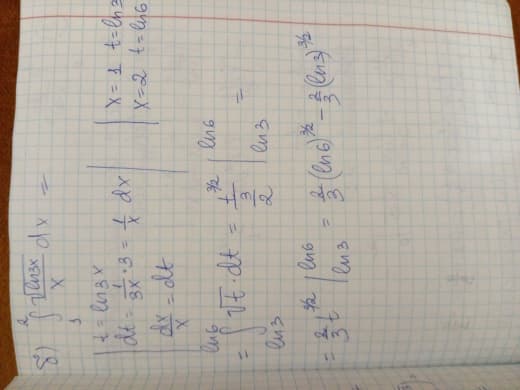 б) ∫₁² √ln3x / x dx =
t = ln3x
dt = 1/3x · 3 = 1/x dx
dx/x = dt
x = 1 t = ln3
x = 2 t = ln6
= ∫_{ln3}^{ln6} √t · dt = t^{3/2} / (3/2) |_{ln3}^{ln6} =
= 2/3 t^{3/2} |_{ln3}^{ln6} = 2/3 (ln6)^{3/2} - 2/3 (ln3)^{3/2}